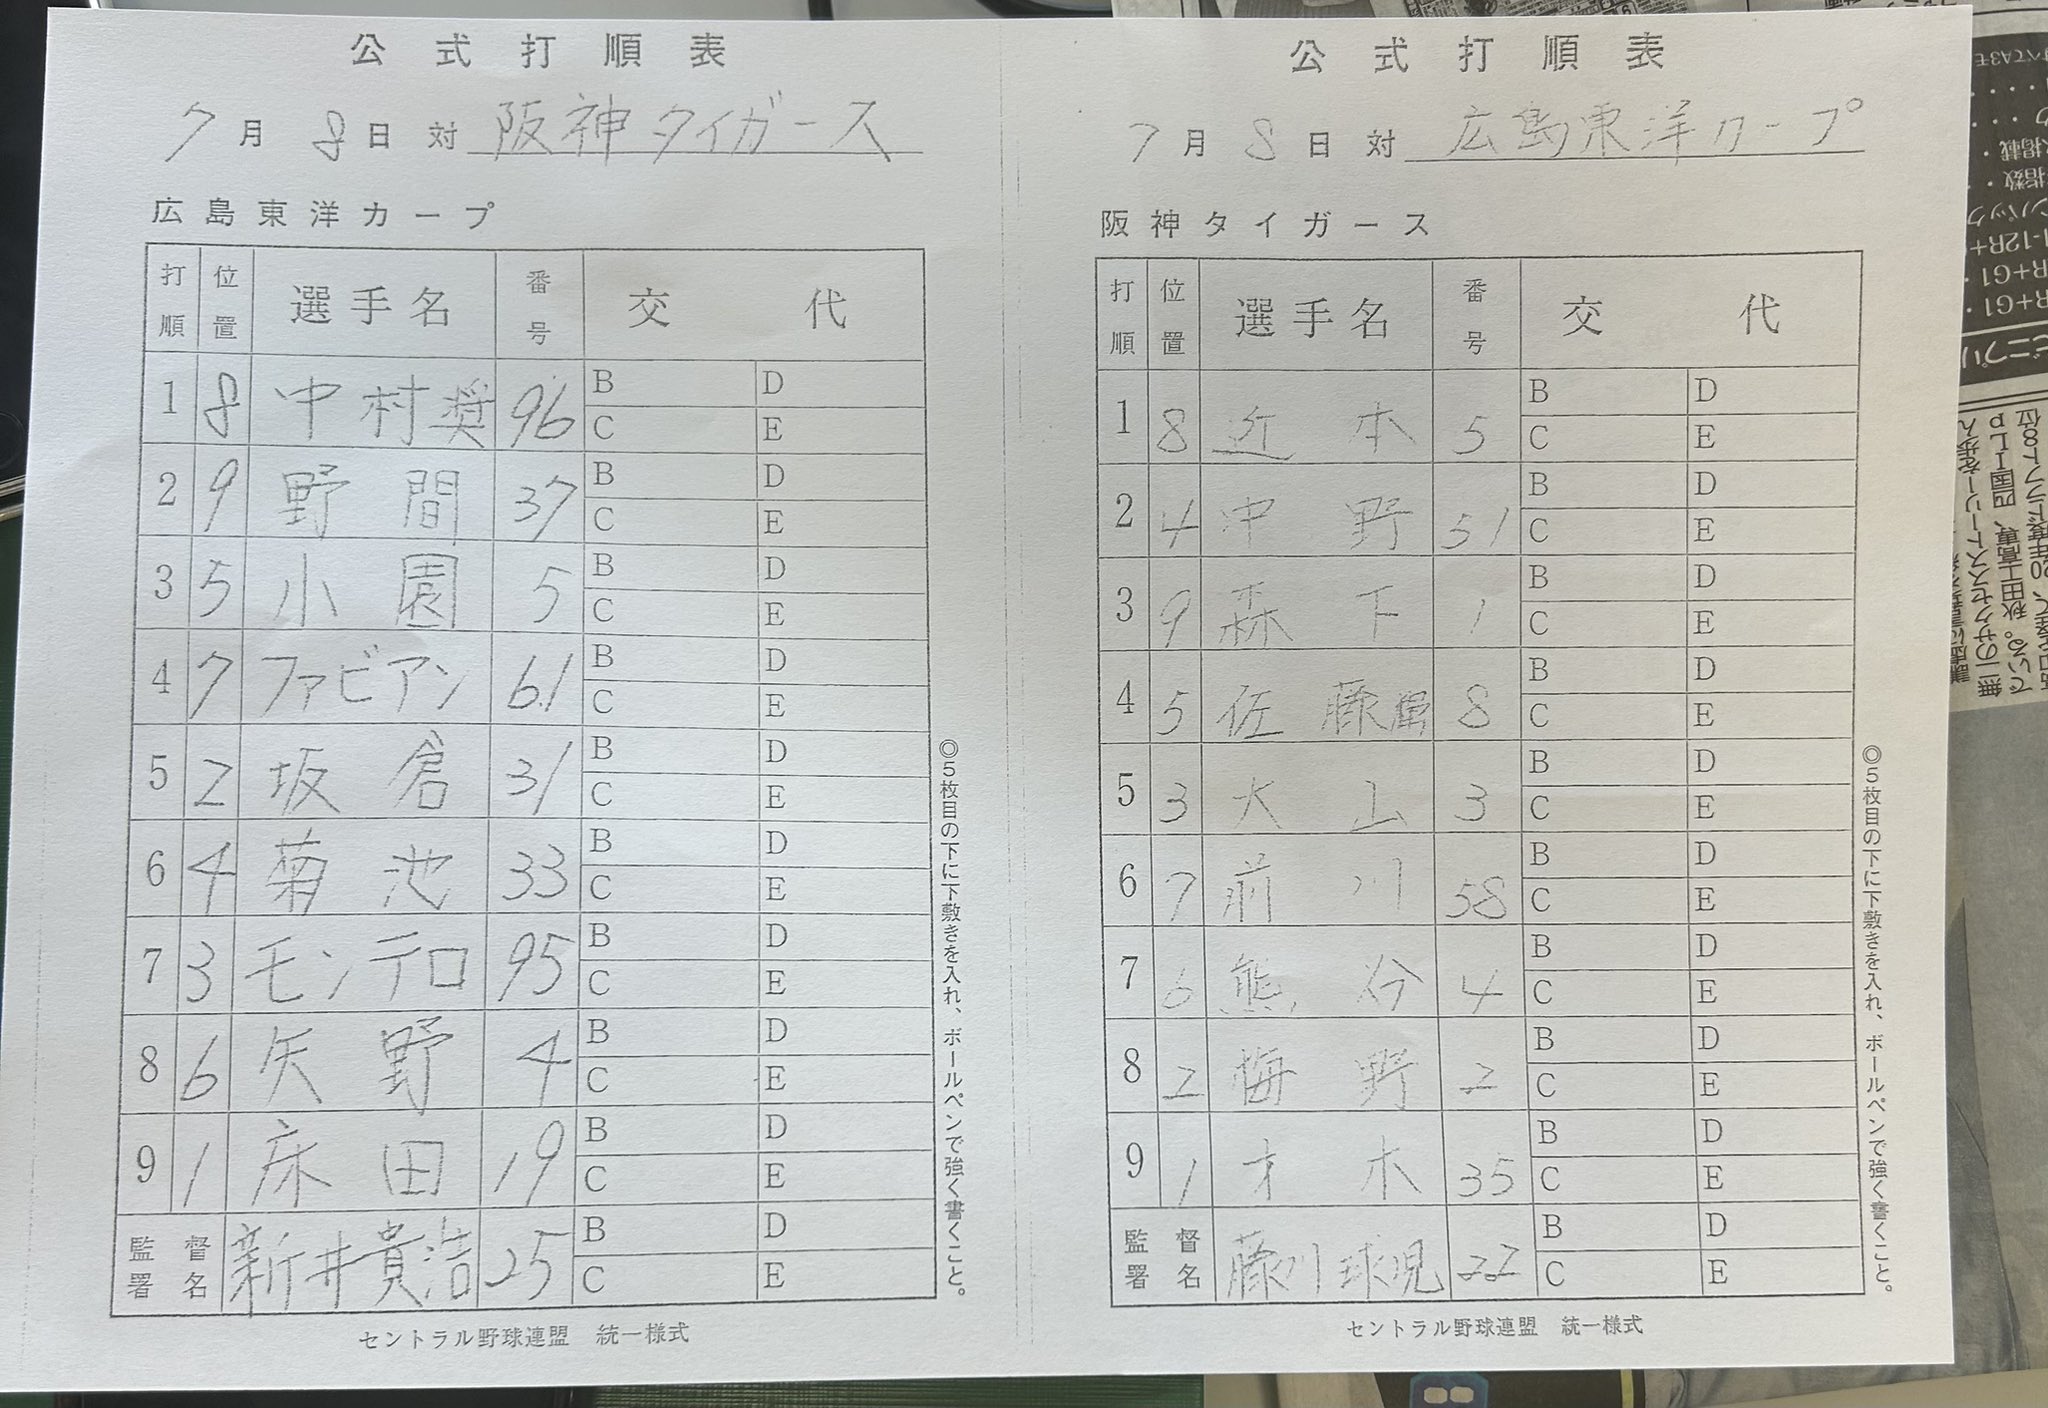 公式打順表
7月8日 対 阪神タイガース
広島東洋カープ
打順 位置 選手名 番号 交代
1 8 中村奨 96 B D C E
2 9 野間 37 B D C E
3 5 小園 5 B D C E
4 7 ファビアン 61 B D C E
5 2 坂倉 31 B D C E
6 4 菊池 33 B D C E
7 3 モンテロ 95 B D C E
8 6 矢野 4 B D C E
9 1 床田 19 B D C E
監督署名 新井貴浩 25 B D C E
◎5枚目の下に下敷きを入れ、ボールペンで強く書くこと。
セントラル野球連盟 統一様式
公式打順表
7月8日 対 広島東洋カープ
阪神タイガース
打順 位置 選手名 番号 交代
1 8 近本 5 B D C E
2 4 中野 51 B D C E
3 9 森下 1 B D C E
4 5 佐藤輝 8 B D C E
5 3 大山 3 B D C E
6 7 前川 58 B D C E
7 6 熊谷 4 B D C E
8 2 梅野 2 B D C E
9 1 才木 35 B D C E
監督署名 藤川球児 22 B D C E
◎5枚目の下に下敷きを入れ、ボールペンで強く書くこと。
セントラル野球連盟 統一様式